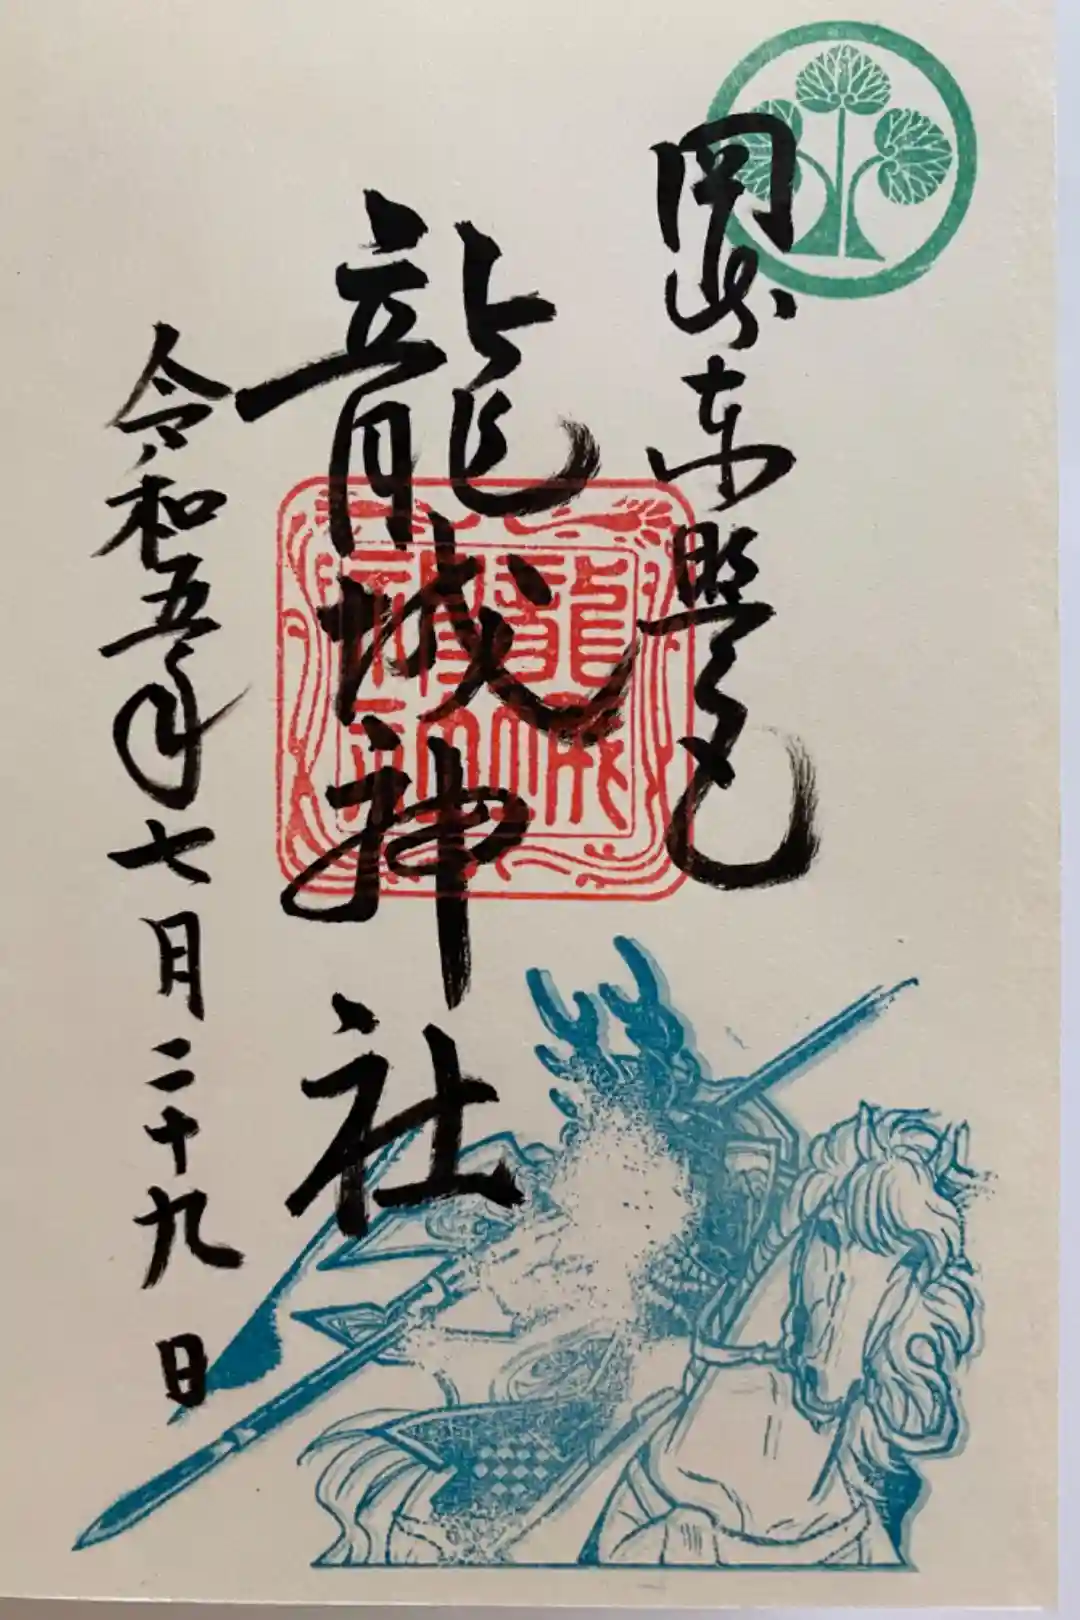 岡崎東照宮
龍城神社
龍城
神社
令和五年七月二十九日